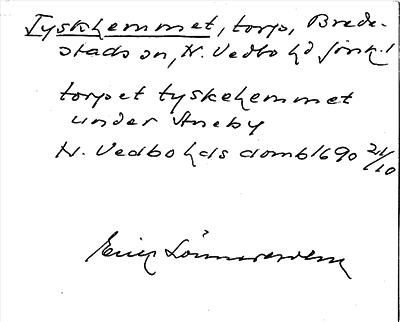 Tyskhemmet, torp, Brede-
stads sn, N. Vedbo hd Jönk. l
torpet tyskehemmet
under Aneby
N. Vedbo hds domb 1690 21/10
Erik